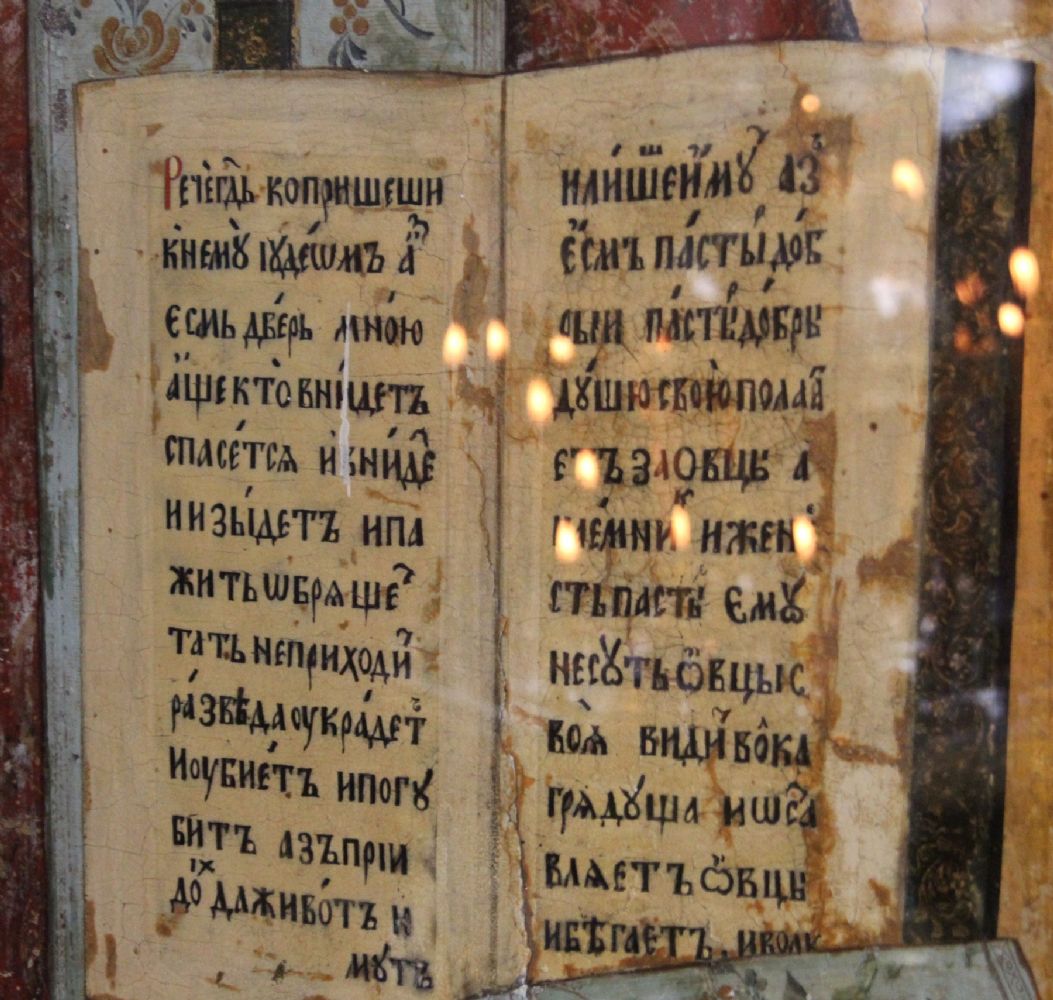 Речегдь копришеши
кнемꙋ̀ іꙋде́ѡмъ а҆́з
Єсмь две́рь мно́ю
а҆́ще кто̀ вни́детъ
спасе́тсѧ и҆вни́де
и изы́детъ ипа
житьѡбрѧще
татьнеприходи
ра́звѣдаоукра́детъ
Иоубие́тъ ипогꙋ
би́тъ азъпріи
до́х даживо́тъ и
мꙋть
или́шеи́мꙋ аз
є҆́смъ па́стыдо́б
рыи па́стыдо́бры
дꙋ́шюсвою̀полаа
етъзаовцы а
нае́мник иженѣ
стьпасть Ємꙋ
несꙋтьѻвцыс
воѧ̀ видивока
грѧдꙋща иѡса
влѧетъѻвцы
ибѣгаетъ. иволк